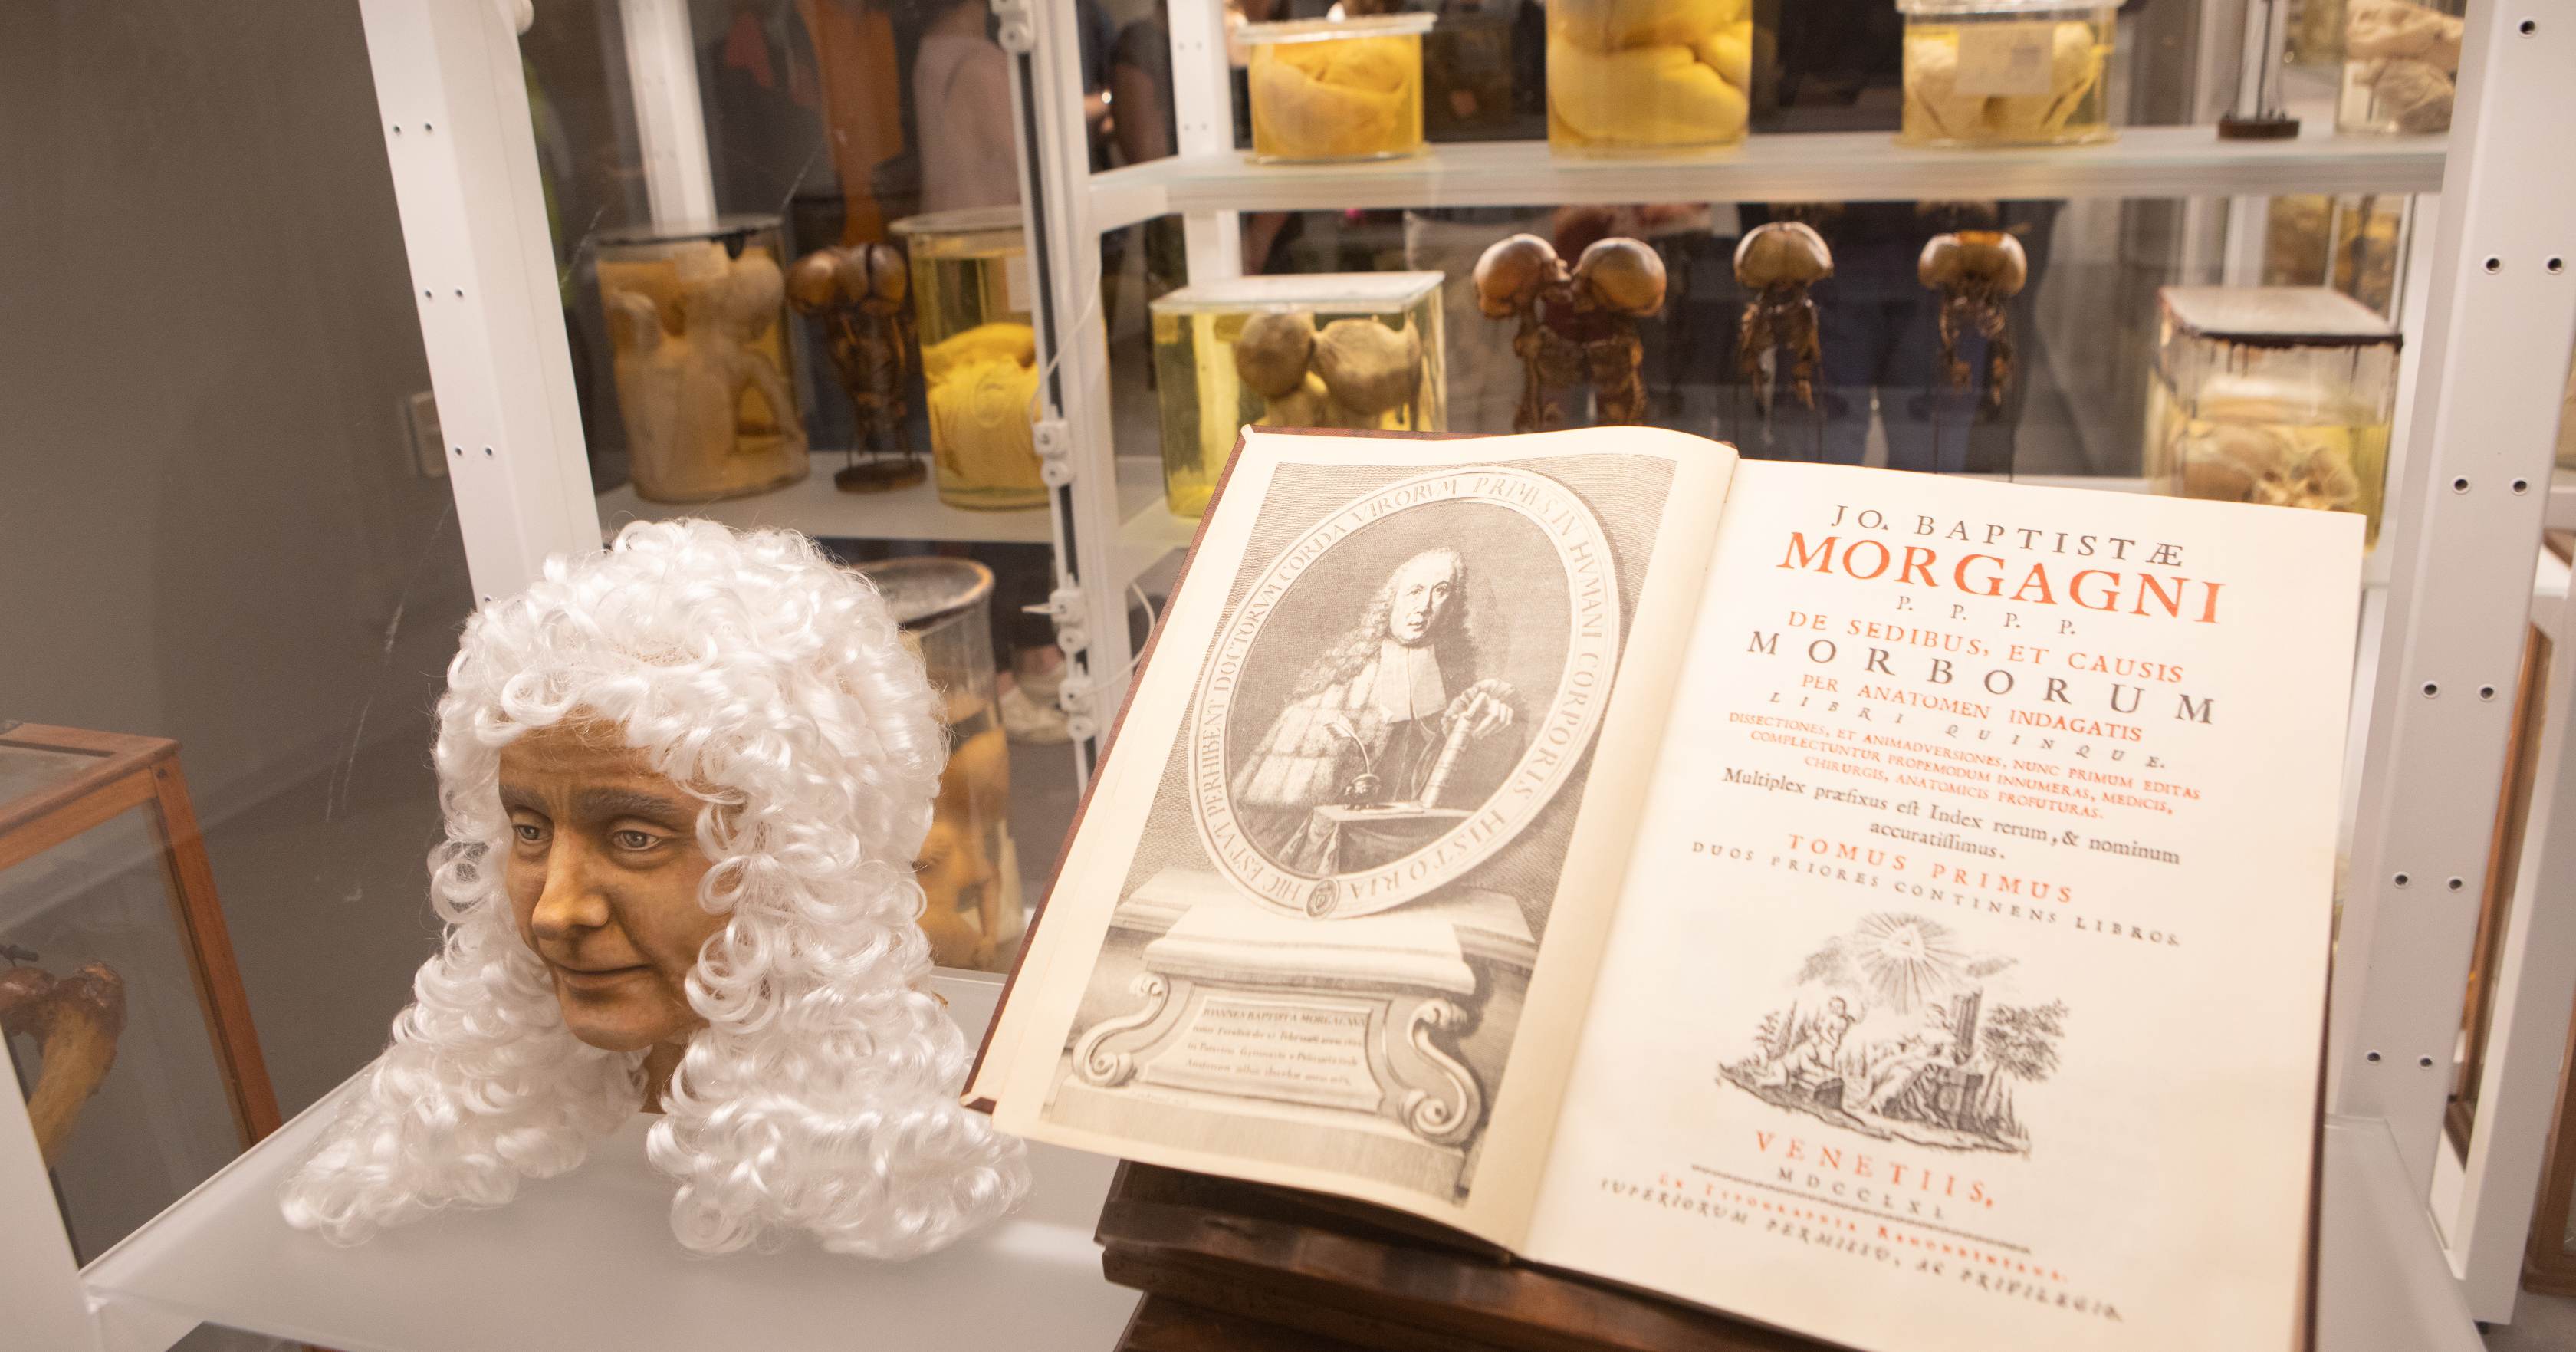 HIC EST VT PERHIBENT DOCTORVM CORDA VIRORVM PRIMVS IN HVMANI CORPORIS HISTORIA
IOANNES BAPTISTA MORGAGNVS
JO. BAPTISTÆ
MORGAGNI
P. P. P. P.
DE SEDIBUS, ET CAUSIS
MORBORUM
PER ANATOMEN INDAGATIS
LIBRI QUINQUE.
DISSECTIONES, ET ANIMADVERSIONES, NUNC PRIMUM EDITAS
COMPLECTUNTUR PROPEMODUM INNUMERAS, MEDICIS,
CHIRURGIS, ANATOMICIS PROFUTURAS.
Multiplex præfixus eſt Index rerum, & nominum
accuratiſſimus.
TOMUS PRIMUS
DUOS PRIORES CONTINENS LIBROS.
VENETIIS,
MDCCLXI.
EX TYPOGRAPHIA REMONDINIANA.
SUPERIORUM PERMISSU, AC PRIVILEGIO.